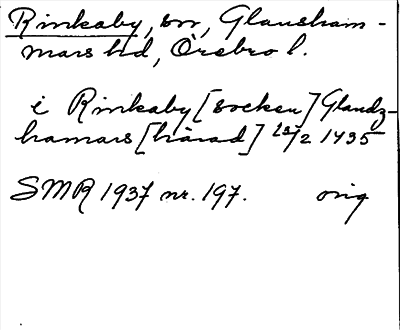 Rinkaby, sn, Glansham-
mars hd, Örebro l.
i Rinkaby [socken] Glandz-
hamars [härad] 25/2 1435
SMR 1937 nr. 197. orig